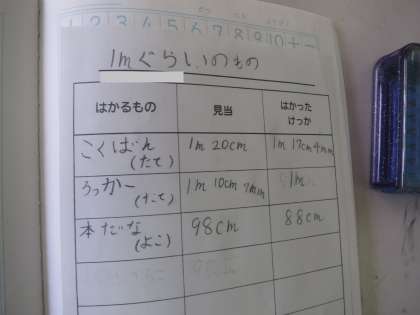 1 2 3 4 5 6 7 8 9 10 + -
1mぐらいのもの
はかるもの 見当 はかった
けっか
こくばん 1m 20cm 1m 17cm 4mm
(たて)
ろっかー 1m 10cm 7mm 1m
(たて)
本だな 98cm 88cm
(よこ)